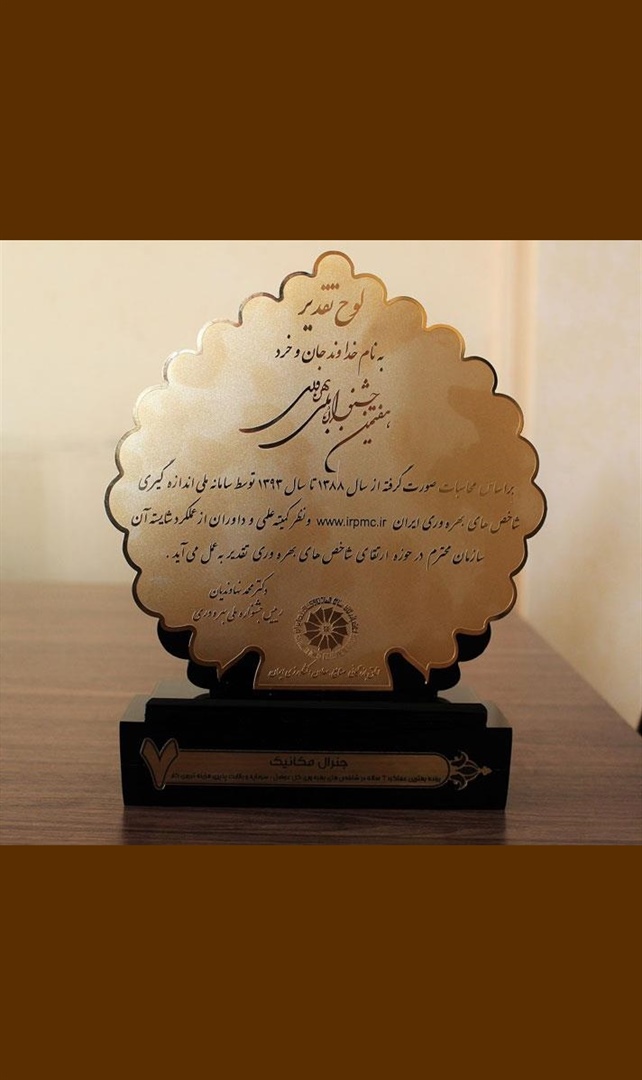 لوح تقدیر
به نام خداوند جان و خرد
هفتمین جشنواره ملی بهره وری
براساس محاسبات صورت گرفته از سال ۱۳۸۸ تا سال ۱۳۹۳ توسط سامانه ملی اندازه گیری
شاخص های بهره وری ایران www.irpmc.ir و نظر کمیته علمی و داوران از عملکرد شایسته آن
سازمان محترم در حوزه ارتقای شاخص های بهره وری تقدیر به عمل می آید .
دکتر محمد نهاوندیان
رییس جشنواره ملی بهره وری
اتاق بازرگانی، صنایع، معادن و کشاورزی ایران
جنرال مکانیک
۷